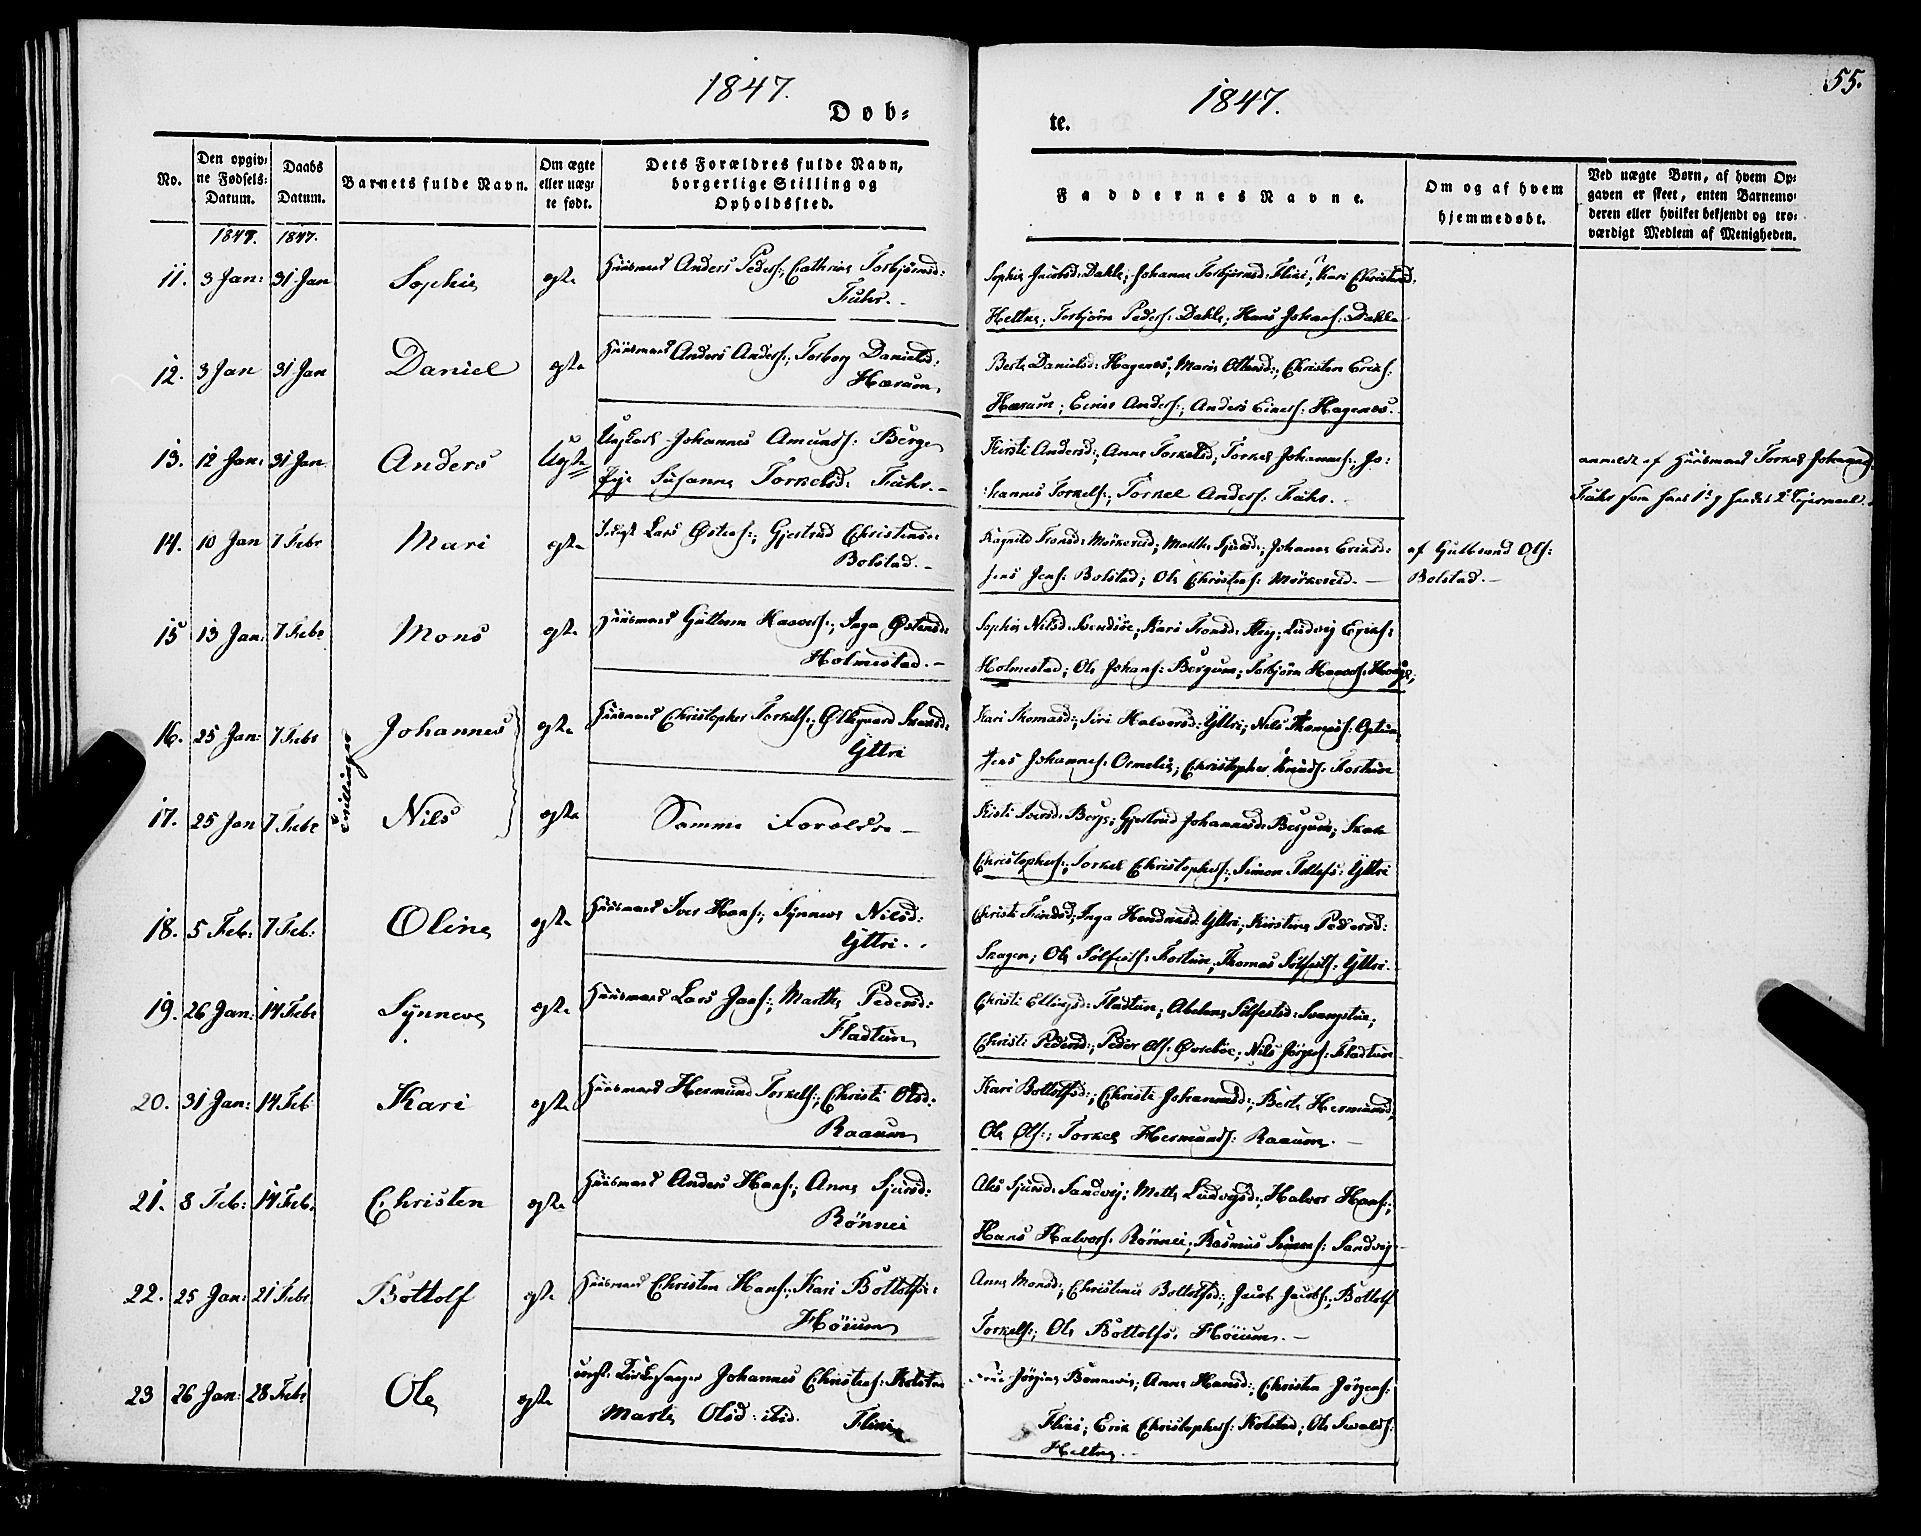 55.
1847.
1847.
Døb-
te.
No.
Den opgiv-
ne Fødsels-
Datum.
Daabs
Datum.
Barnets fulde Navn.
Om ægte
eller uæg-
te født.
Dets Forældres fulde Navn,
borgerlige Stilling og
Opholdssted.
Faddernes Navne.
Om og af hvem
hjemmedøbt.
Ved uægte Børn, af hvem Op-
gaven er skeet, enten Barnemo-
deren eller hvilket bekjendt og tro-
værdigt Medlem af Menigheden.
1847. 1847.
11. 3 Jan: 31 Jan Sophie egte Huusmand Anders Peders:, Cathrine Torbjørnsd:
Fuhr.
Sophie Jacobsd: Dahle; Johanne Torbjørnsd: Flini; Kari Christensd.
Heltne; Torbjørn Peders: Dahle; Hans Johans: Dahle
12. 3 Jan 31 Jan Daniel egte Huusmand Anders Anders:, Torborg Danielsd:
Hærum
Berte Danielsd: Hagenes; Marie Ottersd:; Christen Eriks:
Hærum; Einar Anders:, Anders Einers: Hagenes.
13. 12 Jan: 31 Jan Anders Uegte Ungkarl Johannes Amunds: Berge
Pige Susanne Torkelsd: Fuhr.
Kirsti Andersd:, Anne Torkelsd; Torkel Johannes:, Jo-
hannes Torkels:, Torkel Anders: Fuhr.
anmeldt af Huusmand Torkel Johannes:
Fuhr
14. 10 Jan 7 Febr Mari egte Lars Østens:, Gjertrud Christens:
Bolstad.
Ragnild Tronsd: Mørkereid; Marthe Sjursd:, Johanne Eriksd:
Jens Jens: Bolstad; Ole Christens: Mørkereid.
af Gulbrand Ols:
Bolstad.
15 13 Jan: 7 Febr Mons egte Huusmand Guttorm Haavers:, Inga Østensd:
Holmestad.
Sophie Nilsd: Svendsøe; Kari Tronsd: Steig; Ludvig Eriks:
Holmestad; Ole Johans: Bergum; Torbjørn Haavers: Hauge;
16. 25 Jan: 7 Febr Johannes egte Huusmand Christopher Torkels:, Ollegaard
Yttri
Kari Thomasd:, Siri Halvorsd: Yttri; Nils Thomas: Optun
Jens Johannes: Ormelid; Christopher Knuds: Fortun
Tvillinger
17. 25 Jan 7 Febr Nils egte Samme Forældre
Kirsti Iversd: Berge; Gjertrud Johannesd: Bergum;
Christophers:, Torkel Christophers:, Simon Tollefs: Yttri
18. 5 Feb: 7 Feb: Oline egte Huusmand Iver Hans:, Synneve Nilsd:
Yttri.
Christi Findsd; Inga Hendriksd: Yttri; Kirstine Pedersd:
Skagen; Ole Sølfests: Fortun; Thomas Sølfests: Yttri.
19. 26 Jan: 14 Febr Synneve egte Huusmand Lars Jans:, Marthe Pedersd:
Fladtun
Christi Ellingsd: Fladtun; Abelone Sølfestsd: Svangstue;
Christi Pedersd:, Peder Ols: Øvrebøe; Nils Jørgens: Fladtun
20. 31 Jan: 14 Feb Kari egte Huusmand Hermund Torkels:, Christi Olsd:
Raaum
Kari Bottolfsd:, Christi Johannesd:, Berte Hermundsd;
Ole Ols:, Torkel Hermunds: Raaum.
21. 8 Feb: 14 Feb. Christen egte Huusmand Anders Hans:, Anne Sjursd:
Rønnei
Ales Sjursd: Sandvig; Mette Ludvigsd:, Halvor Hans:,
Hans Halvors: Rønnei, Rasmus Simens: Sandvig
22. 25 Jan: 21 Febr Bottolf egte Huusmand Christen Hans:, Kari Bottolfs:
Høium
Anne Monsd:, Christense Bottolfsd:, Jacob Jacobs:, Bottolf
Torkels:, Ole Bottolfs: Høium.
23 26 Jan: 28 Febr Ole egte Johannes Christens: Kolstad
Marte Olsd: ibid. Flini
Jørgine Bonnevie; Anne Hansd:, Christen Jørgens:
Flini; Erik Christophers: Kolstad; Ole Sivalds:
Heltne.